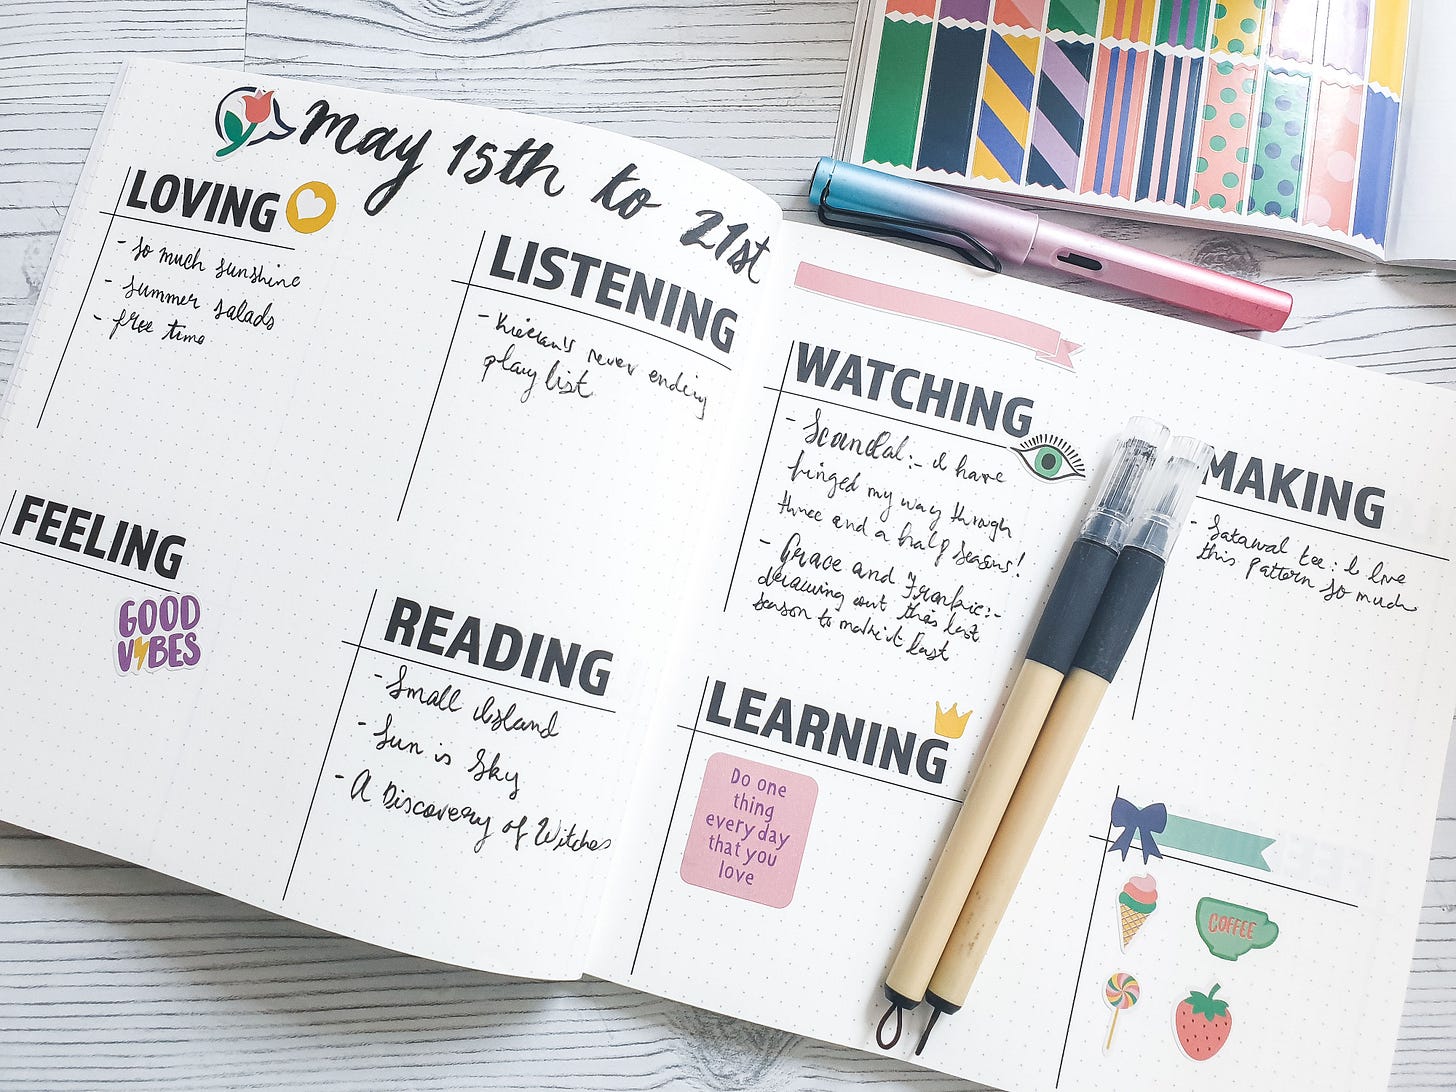 May 15th to 21st
LOVING
- So much sunshine
- Summer salads
- free time
LISTENING
- Kieran's never ending
play list
FEELING
GOOD
VIBES
READING
- Small Island
- Sun is Sky
- A Discovery of Witches
WATCHING
- Scandal:- I have
binged my way through
three and a half seasons!
- Grace and Frankie:-
drawing out this last
season to make it last
LEARNING
Do one
thing
every day
that you
love
MAKING
- Satawal tee: I love
this pattern so much
COFFEE